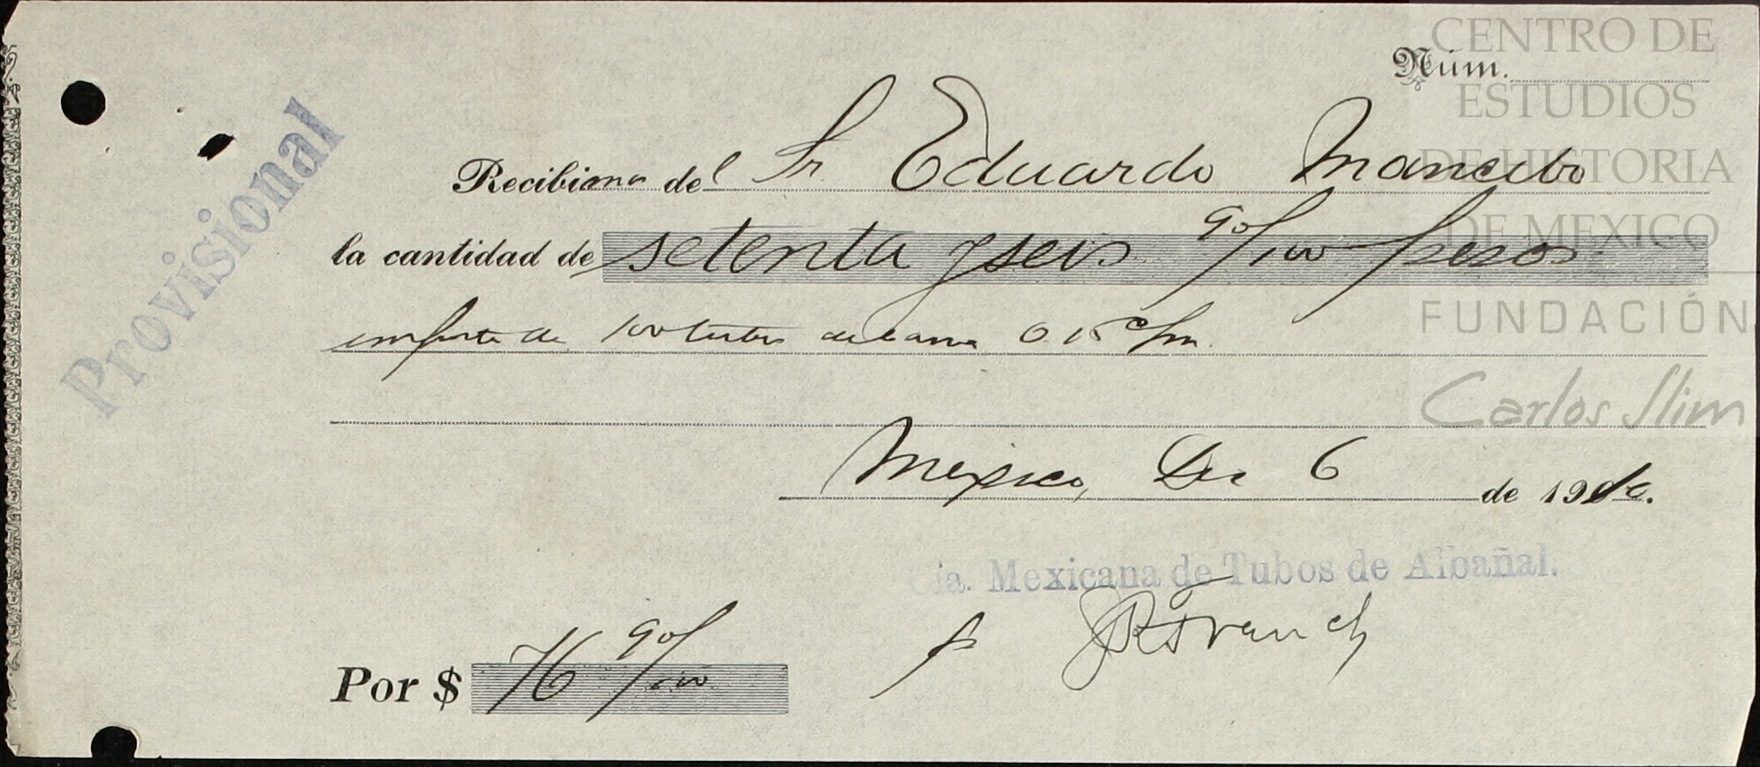 CENTRO DE
ESTUDIOS
DE HISTORIA
DE MEXICO
FUNDACIÓN
Carlos Slim
Núm.
Provisional
Recibimos del Sr Eduardo Mancebo
la cantidad de setenta y seis 90/100 pesos
importe de 100 tubos de 0.15 c/m
Mexico, Dic 6 de 1910.
ia. Mexicana de Tubos de Albañal.
p JR Franch
Por $ 76 90/100